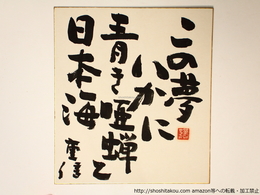 この夢
いかに
青き唖蝉と
日本海
http://shoshitakou.com amazon等への転載・加工禁止